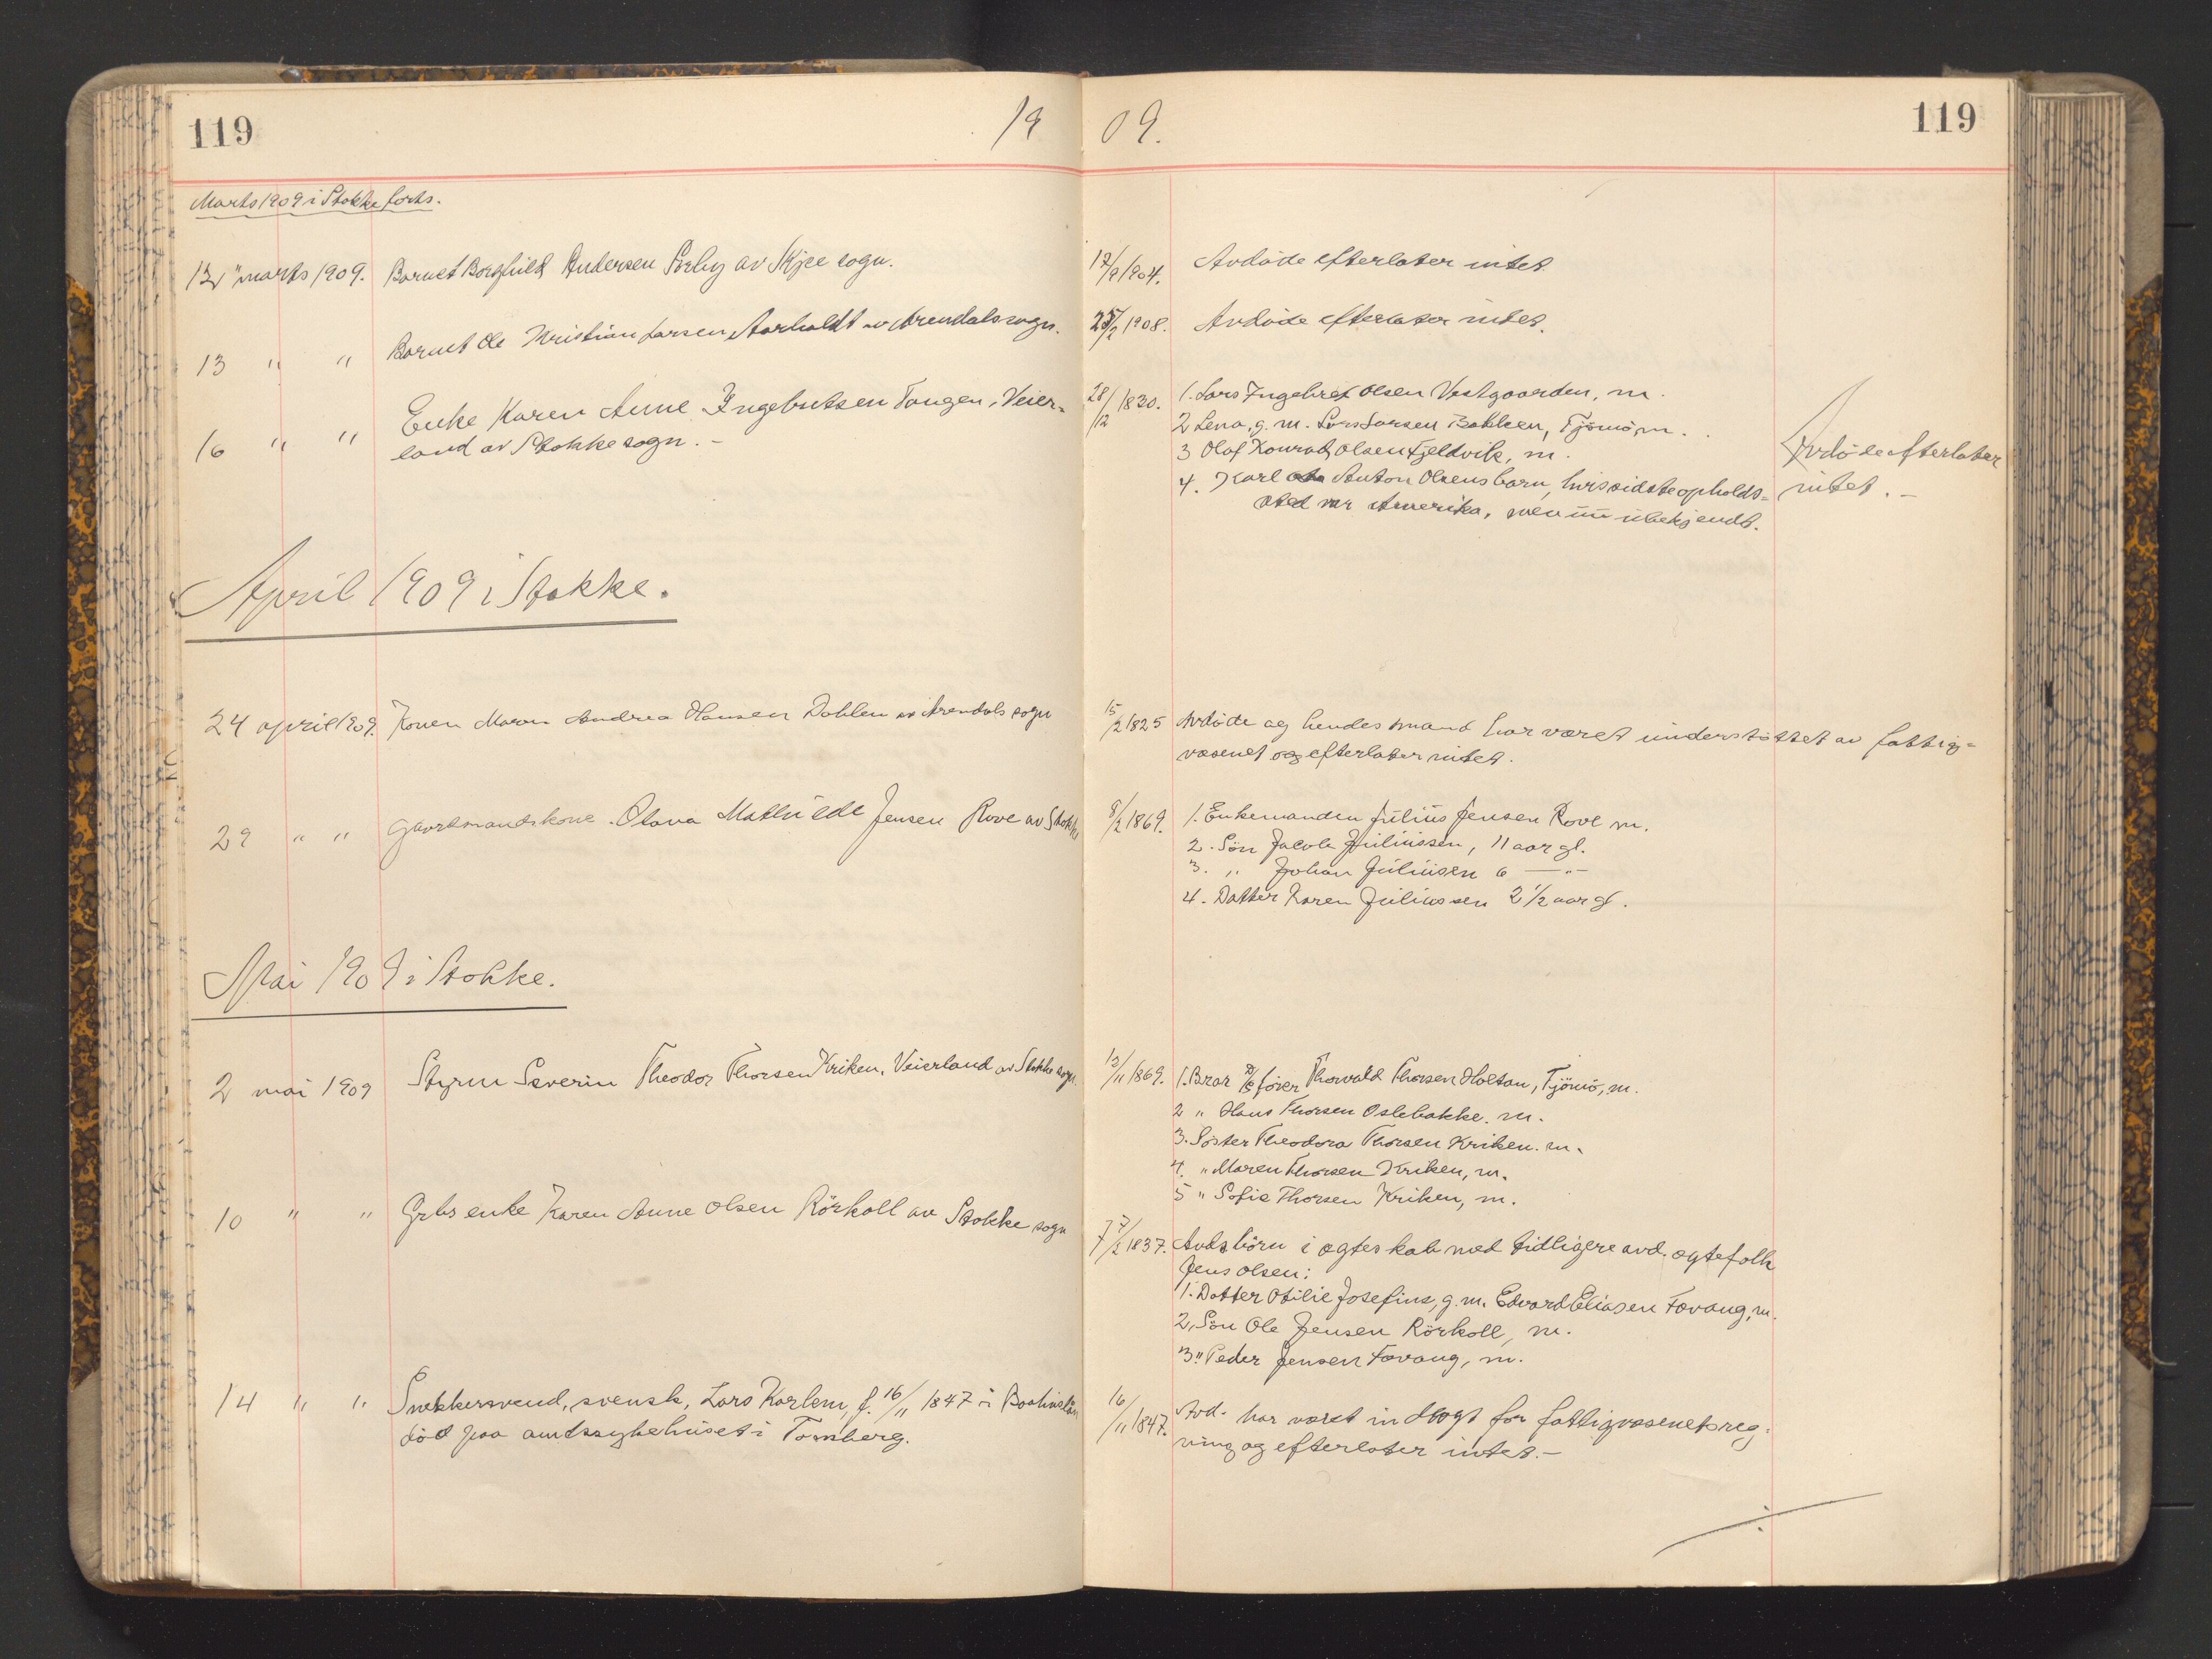 119
19 09.
119
Marts 1909 i Stokke forts.
12 marts 1909. Barnet Borghild Andersen Sörby av Skjee sogn.
12/9 1904. Avdöde efterlater intet.
13 " " Barnet Ole Kristian Larsen Aarholdt av Arendals sogn.
25/2 1908. Avdöde efterlater intet.
16 " " Enke Karen Anne Ingebretsen Tangen, Veier-
land av Stokke sogn. -
28/12 1830. 1. Lars Ingebret Olsen Vestgaarden, m.
2 Lena, g. m. Lars Larsen Bakken, Tjömö, m.
3 Olaf Konrad Olsen Fjeldvik, m.
4. Karl Anton Olsens barn, hvis sidste opholds-
sted var Amerika, men nu ubekjendt.
Avdöde efterlater
intet. -
April 1909 i Stokke.
24 april 1909. Konen Maren Andrea Hansen Dahlen av Arendals sogn
15/2 1825 Avdöde og hendes mand har været understöttet av fattig-
væsenet og efterlater intet.
29 " " Gaardmandskone Olava Mathilde Jensen Rove av Stokke
8/2 1869. 1. Enkemanden Julius Jensen Rove m.
2. Sön Jacob Juliussen, 11 aar gl.
3. " Johan Juliussen 6 — " —
4. Datter Karen Juliussen 2 1/2 aar gl.
Mai 1909 i Stokke.
2 mai 1909 Styrm Severin Theodor Thorsen Kriken, Veierland av Stokke sogn.
13/11 1869. 1. Bror förer Thorvald Thorsen Holtan, Tjömö, m.
2 " Hans Thorsen Oslebakke. m.
3. Söster Theodora Thorsen Kriken. m.
4. " Maren Thorsen Kriken, m.
5 " Sofie Thorsen Kriken, m.
10 " " Grbs enke Karen Anne Olsen Rörkoll av Stokke sogn
7/2 1837. Avds börn i ægteskab med tidligere avd. ægtefolk
Jens Olsen:
1. Datter Otilie Josefine, g. m. Edvard Eliasen Favang, m.
2, Sön Ole Jensen Rörkoll, m.
3 " Peder Jensen Favang, m.
14 " " Snekkersvend, svensk, Lars Karlem, f. 16/11 1847 i Baahuslän
död paa amtssykehuset i Tönsberg.
16/11 1847. Avd. har været indlagt for fattigvæsenets reg-
ning og efterlater intet. -